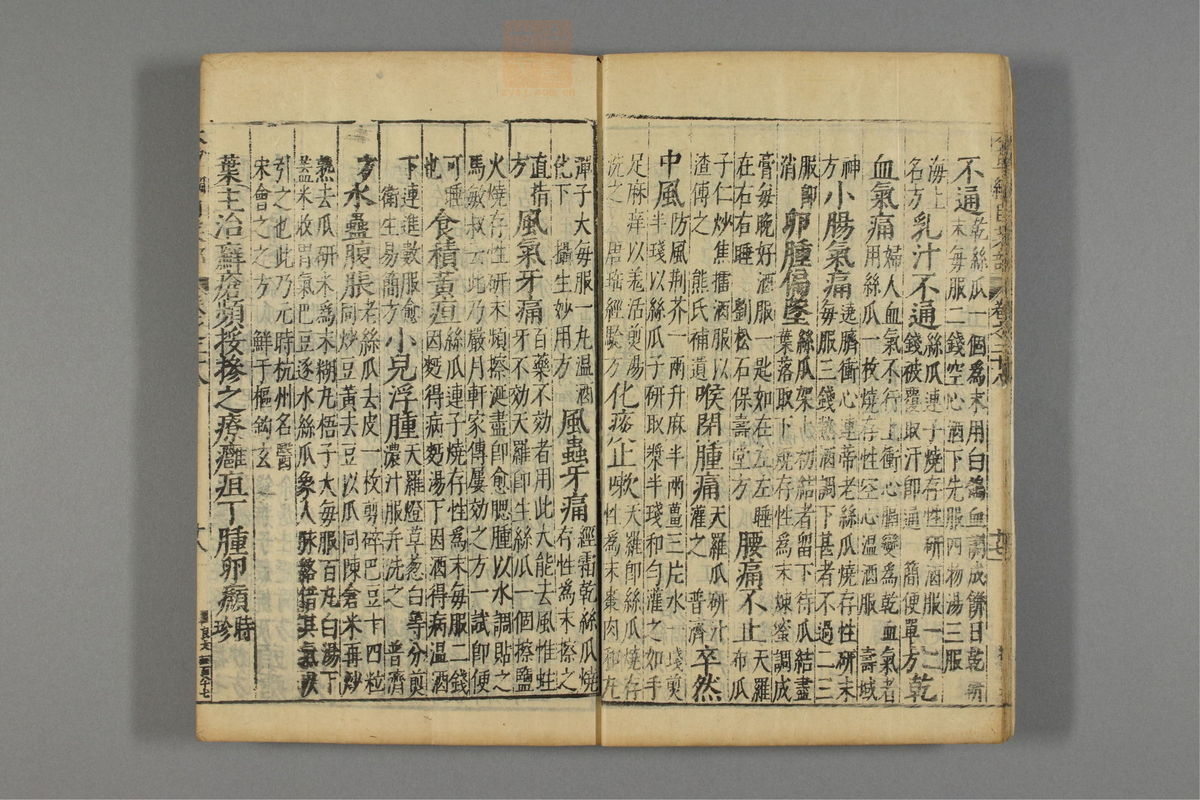 不通乾絲瓜一個爲末用白鴿血調成餅日乾研
末每服二錢空心酒下先服四物湯三服
海上名方乳汁不通絲瓜連子燒存性研酒服一二
錢被覆取汗即通 簡便單方乾
血氣痛婦人血氣不行上衝心膈變爲乾血氣者
用絲瓜一枚燒存性空心溫酒服 壽域
神方小腸氣痛遶臍衝心連蒂老絲瓜燒存性研末
每服三錢熱酒調下甚者不過二三
服即消卵腫偏墜絲瓜架上初結者留下待瓜結盡
葉落取下燒存性爲末煉蜜調成
膏每晚好酒服一匙如在左左睡
在右右睡 劉松石保壽堂方腰痛不止天羅布瓜
子仁炒焦擂酒服以
渣傅之 熊氏補遺喉閉腫痛天羅瓜研汁
灌之 普濟卒然
中風防風荊芥一兩升麻半兩薑三片水一琖煎
半琖以絲瓜子研取漿半琖和勻灌之如手
足麻痒以羌活煎湯
洗之 唐瑤經驗方化痰止嗽天羅即絲瓜燒存
性爲末棗肉和丸
彈子大每服一丸溫酒
化下 攝生妙用方風蟲牙痛經霜乾絲瓜燒
存性爲末擦之
直指方風氣牙痛百藥不效者用此大能去風惟蛀
牙不效天羅即生絲瓜一個擦鹽
火燒存性研末頻擦涎盡即愈腮腫以水調貼之
馬敏叔云此乃嚴月軒家傳屢效之方一試即便
可睡也食積黃疸絲瓜連子燒存性爲末每服二錢
因麪得病麪湯下因酒得病溫酒
下連進數服愈
衛生易簡方小兒浮腫天羅燈草葱白等分煎
濃汁服并洗之 普濟
方水蠱腹脹老絲瓜去皮一枚剪碎巴豆十四粒
同炒豆黃去豆以瓜同陳倉米再炒
熟去瓜研米爲末糊丸梧子大每服百丸白湯下
蓋米收胃氣巴豆逐水絲瓜象人脈絡借其氣以
引之也此乃元時杭州名醫
宋會之之方 鮮于樞鈎玄
葉主治癬瘡頻挼掺之療癰疽丁腫卵癩時珍